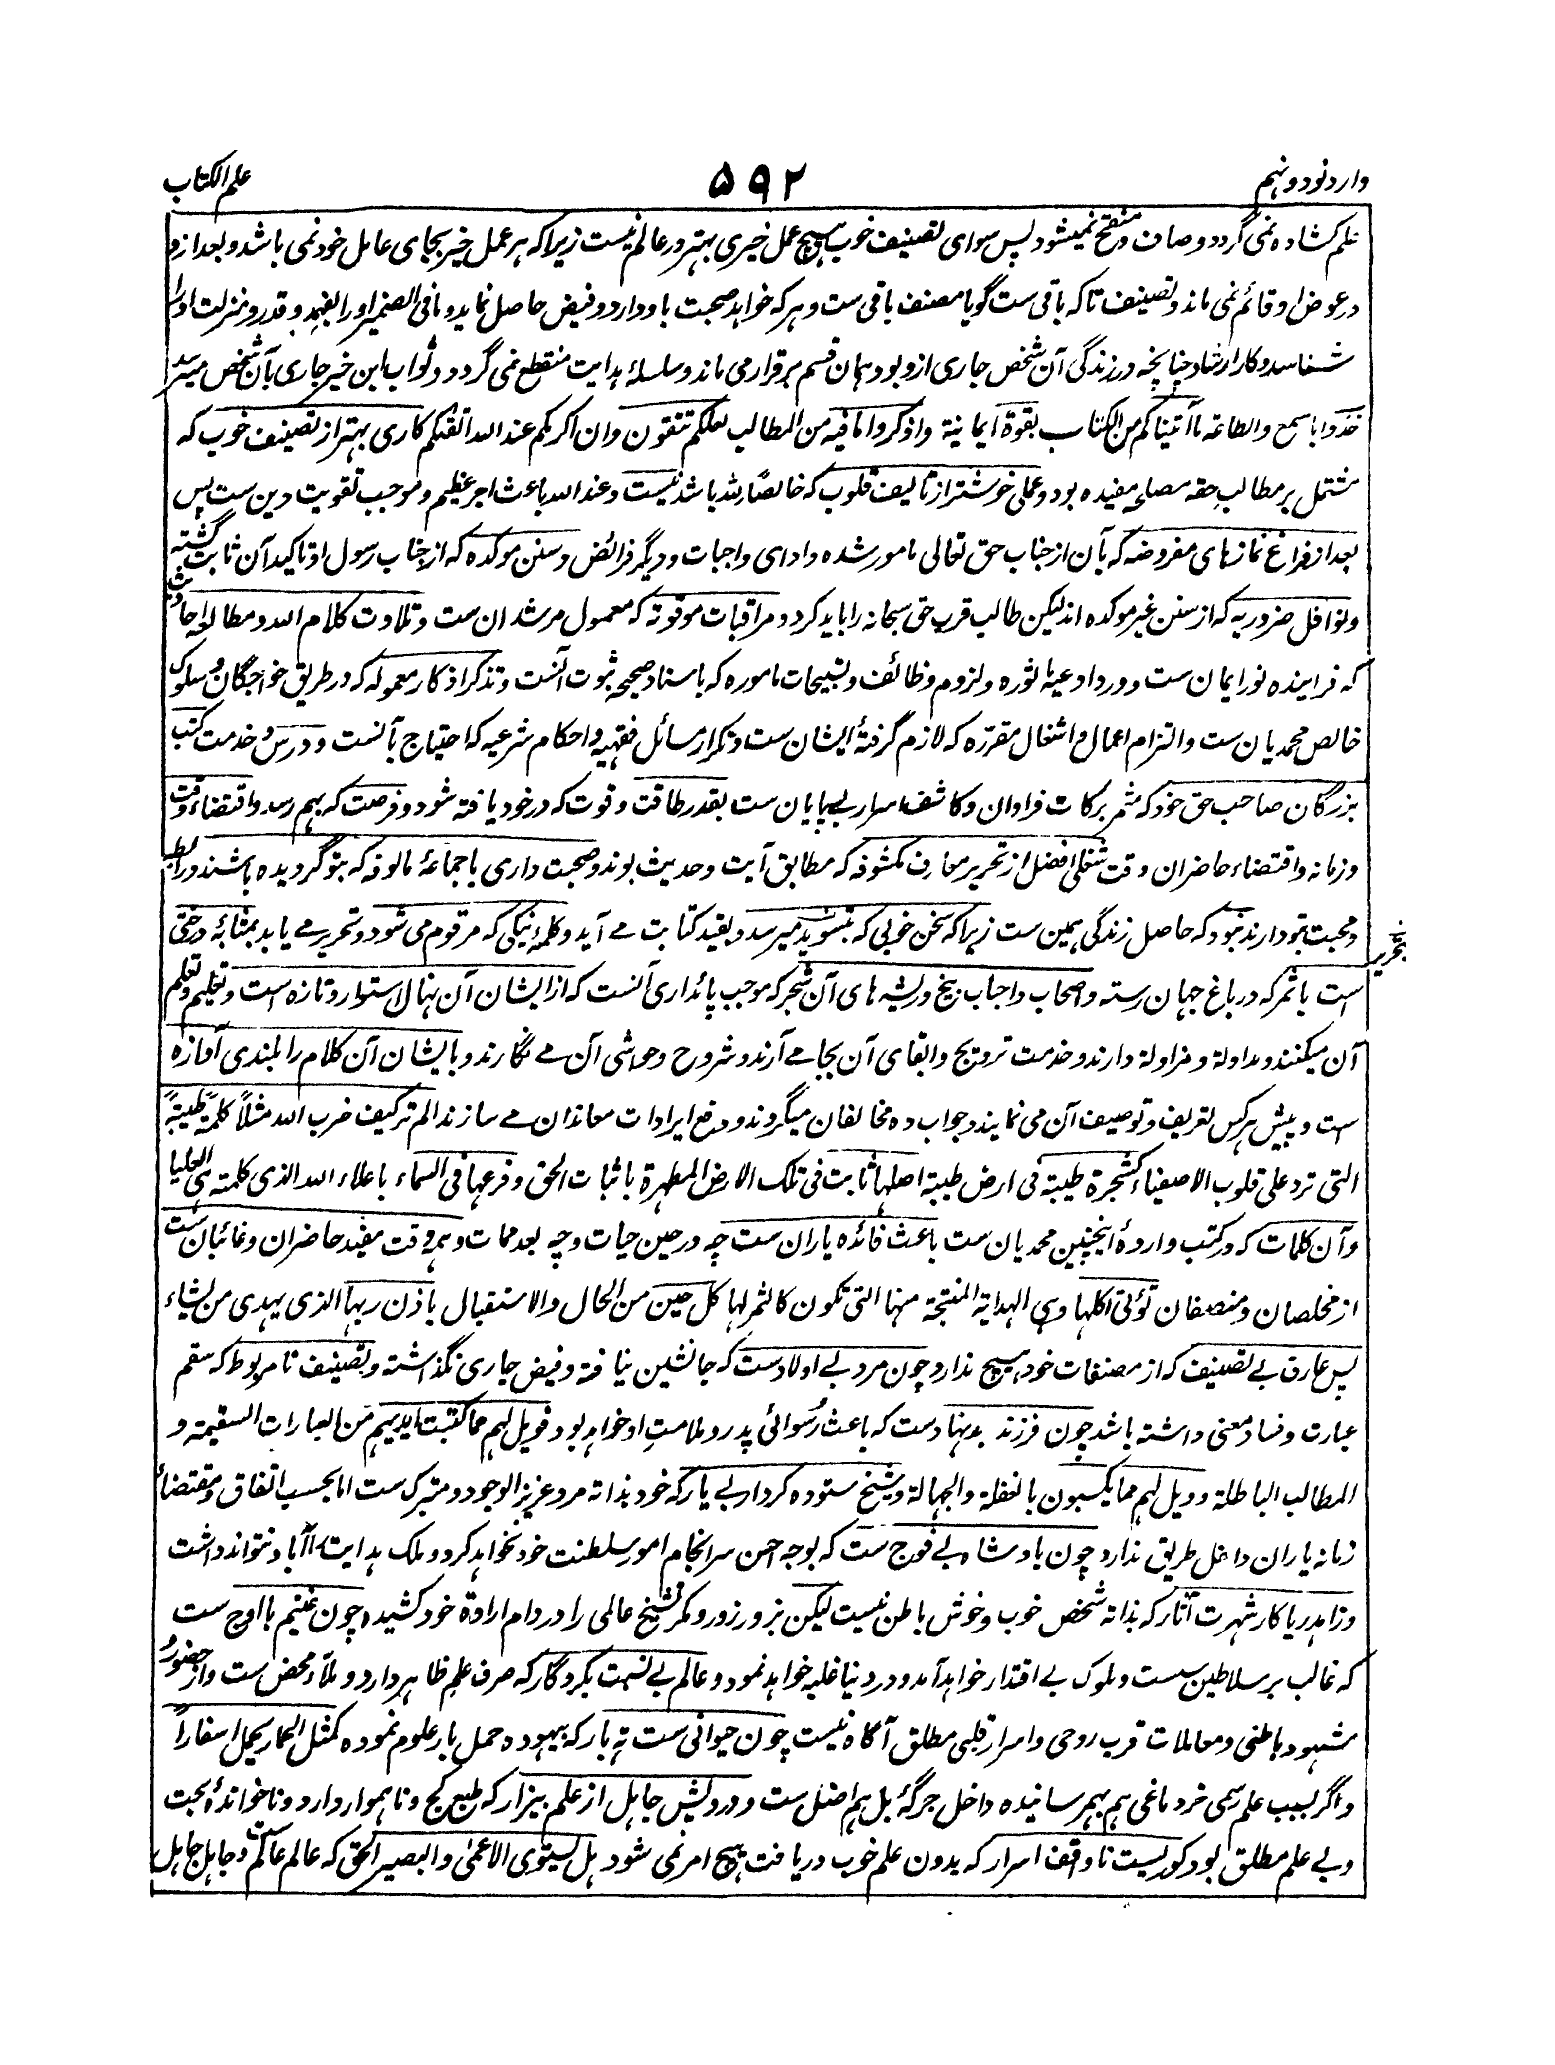 وارد نود و نهم
۵۹۲
علم الکتاب
علم کشاده نمی گردد و صاف و منقح نمیشود پس سوای تصنیف خوب هیچ عمل خیری بهتر در عالم نیست زیرا که هر عمل خیر بجای عامل خود نمی باشد و بعد ازو
در عوض او قائم نمی ماند و تصنیف تا که باقی ست گویا مصنف باقی ست و هر که خواهد صحبت باو دارد و فیض حاصل نماید و مافی الضمیر او را بفهمد و قدر و منزلت او را
شناسد و کار ارشاد چنانچه در زندگی آن شخص جاری ازو بود همان قسم برقرار می ماند و سلسلهٔ هدایت منقطع نمی گردد و ثواب این خیر جاری بآن شخص میرسد
خذوا بالسمع والطاعة ما آتیناکم من الکتاب بقوة ایمانیة واذکروا ما فیه من المطالب لعلکم تتقون وان اکرمکم عند الله اتقٰکم کاری بهتر از تصنیف خوب که
مشتمل بر مطالب حقه مصلحه مفیده بود و عملی خوشتر از تالیف قلوب که خالصًا لله باشد نیست و عند الله باعث اجر عظیم و موجب تقویت دین ست پس
بعد از فراغ نمازهای مفروضه که بآن از جناب حق تعالی مامور شده و ادای واجبات و دیگر فرائض و سنن موکده که از جناب رسول او تاکید آن ثابت گشته
و نوافل ضروریه که از سنن غیر موکده اند لیکن طالب قرب حق سبحانه را باید کرد و مراقبات موقوته که معمول مرشدان ست و تلاوت کلام الله و مطالعهٔ احادیث
که فزاینده نور ایمان ست و ورد ادعیه ماثوره و لزوم وظائف و تسبیحات ماموره که باسناد صحیحه ثبوت آنست و تذکر اذکار معموله که در طریق خواجگان و سلوک
خالص محمدیان ست و التزام اعمال و اشغال مقرره که لازم گرفتهٔ ایشان ست و تکرار مسائل فقهیه و احکام شرعیه که احتیاج بآنست و درس و خدمت کتب
بزرگان صاحب حق خود که مثمر برکات فراوان و کاشف اسرار بے پایان ست بقدر طاقت و قوت که در خود یافته شود و فرصت که بهم رسد و اقتضاء وقت
و زمانه و اقتضاء حاضران وقت شغلی افضل از تحریر معارف مکشوفه که مطابق آیت و حدیث بوند و صحبت داری باجماعهٔ مالوفه که بتو گرویده باشند و رابطه
و محبت بتو دارند نبود که حاصل زندگی همین ست زیرا که سخن خوبی که بتسوید میرسد و بقید کتابت مے آید و کلمهٔ نیکی که مرقوم می شود و تحریر مے یابد بمثابهٔ درختی
بتحریر
است باثمر که در باغ جهان رسته و اصحاب و احباب بیخ و ریشه های آن شجر که موجب پائداری آنست که از ایشان آن نهال استوار و تازه است و تعلیم و تعلم
آن میکنند و مداولة و مزاولة دارند و خدمت ترویج و ابقای آن بجا مے آرند و شروح و حواشی آن مے نگارند و بایشان آن کلام را بلندی آوازه
است و پیش هر کس تعریف و توصیف آن می نمایند و جواب ده مخالفان میگردند و دفع ایرادات معاندان مے سازند الم تر کیف ضرب الله مثلاً کلمةً طیبةً
التی ترد علی قلوب الاصفیاء کشجرة طیبة فی ارض طیبة اصلها ثابت فی تلک الارض المطهرة باثبات الحق و فرعها فی السماء باعلاء الله الذی کلمته هی العلیا
و آن کلمات که در کتب واردهٔ اینچنین محمدیان ست باعث فائده یاران ست چه در حین حیات و چه بعد ممات و هر وقت مفید حاضران و غائبان ست
از مخلصان و منصفان تؤتی اکلها وهی الهدایة المنتجة منها التی تکون کالثمر لها کل حین من الحال والاستقبال باذن ربها الذی یهدی من یشاء
پس عارف بے تصنیف که از مصنفات خود هیچ ندارد چون مرد بے اولاد ست که جانشین نیافته و فیض جاری نگذاشته و تصنیف نامربوط که سقم
عبارت و فساد معنی داشته باشد چون فرزند بدنهاد ست که باعث رُسوائی پدر و ملامت او خواهد بود فویل لهم مما کتبت ایدیهم من العبارات السقیمة و
المطالب الباطلة و ویل لهم مما یکسبون بالغفلة والجهالة و شیخ ستوده کردار بے یار که خود بذاته مرد عزیز الوجود و متبرک ست اما بحسب اتفاق و مقتضاء
زمانه یاران داخل طریق ندارد چون بادشاه بے فوج ست که بوجه احسن سرانجام امور سلطنت خود نخواهد کرد و ملک هدایت را آباد نتواند داشت
و زاهد ریا کار شهرت آثار که بذاته شخص خوب و خوش باطن نیست لیکن بزور زور و مکر شیخ عالمی را در دام ارادهٔ خود کشیده چون غنیم بااوج ست
که غالب بر سلاطین سست و ملوک بے اقتدار خواهد آمد و در دنیا غلبه خواهد نمود و عالم بے نسبت بکردگار که صرف علم ظاهر دارد و ملاء محض ست و از حضور
شهود باطنی و معاملات قرب روحی و اسرار قلبی مطلق آگاه نیست چون حیوانی ست ته بار که بیهوده حمل بار علوم نموده کمثل الحمار یحمل اسفاراً
و اگر بسبب علم رسمی خر دماغی هم بهم رسانیده داخل جرگهٔ بل هم اضل ست و درویش جاهل از علم بیزار که طبع کج و ناهموار دارد و ناخواندهٔ بحت
و بے علم مطلق بود کوریست ناواقف اسرار که بدون علم خوب دریافت هیچ امر نمی شود هل یستوی الاعمیٰ والبصیر الحق که عالم عالم ست و جاهل جاهل